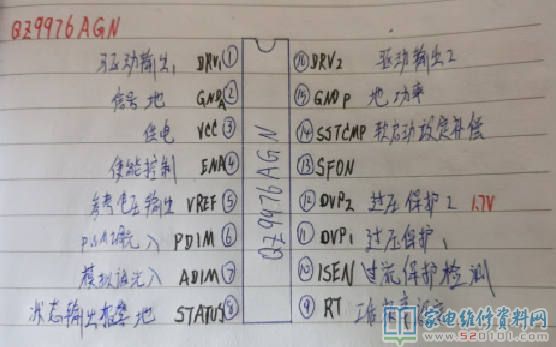 QZ9976AGN
驱动输出1 DRV1 ① ⑯ DRV2 驱动输出2
信号地 GNDA ② ⑮ GNDP 地功率
供电 VCC ③ ⑭ SSTCMP 软启动设定补偿
使能控制 ENA ④ ⑬ SFON
参考电压输出 VREF ⑤ ⑫ OVP2 过压保护2 1.7V
调光入 PDIM ⑥ ⑪ OVP1 过压保护1
模拟调光入 ADIM ⑦ ⑩ ISEN 过流保护检测
状态输出 地 STATUS ⑧ ⑨ RT 工作频率设定
QZ9976AGN
家电维修资料网
520101.com